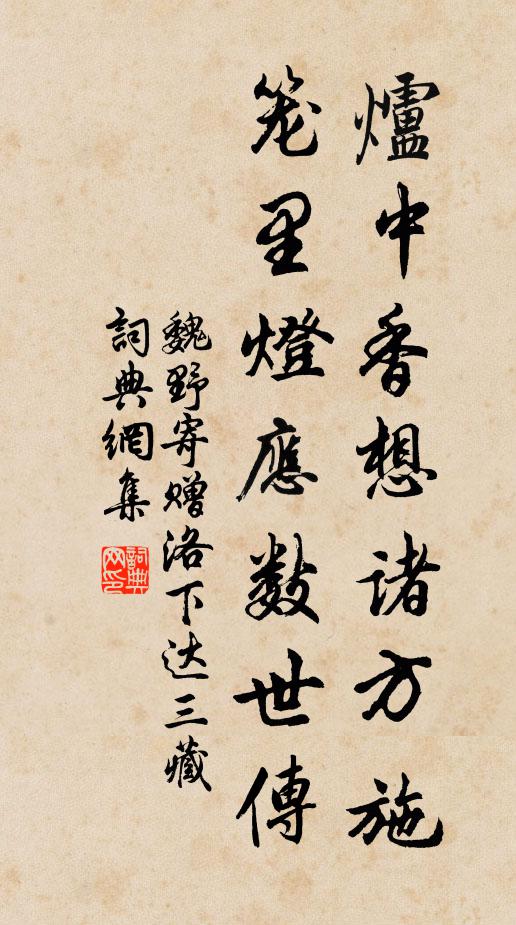 爐中香想诸方施
笼里燈應数世傳
魏野寄赠洛下达三藏
詞典網集
詞典网印